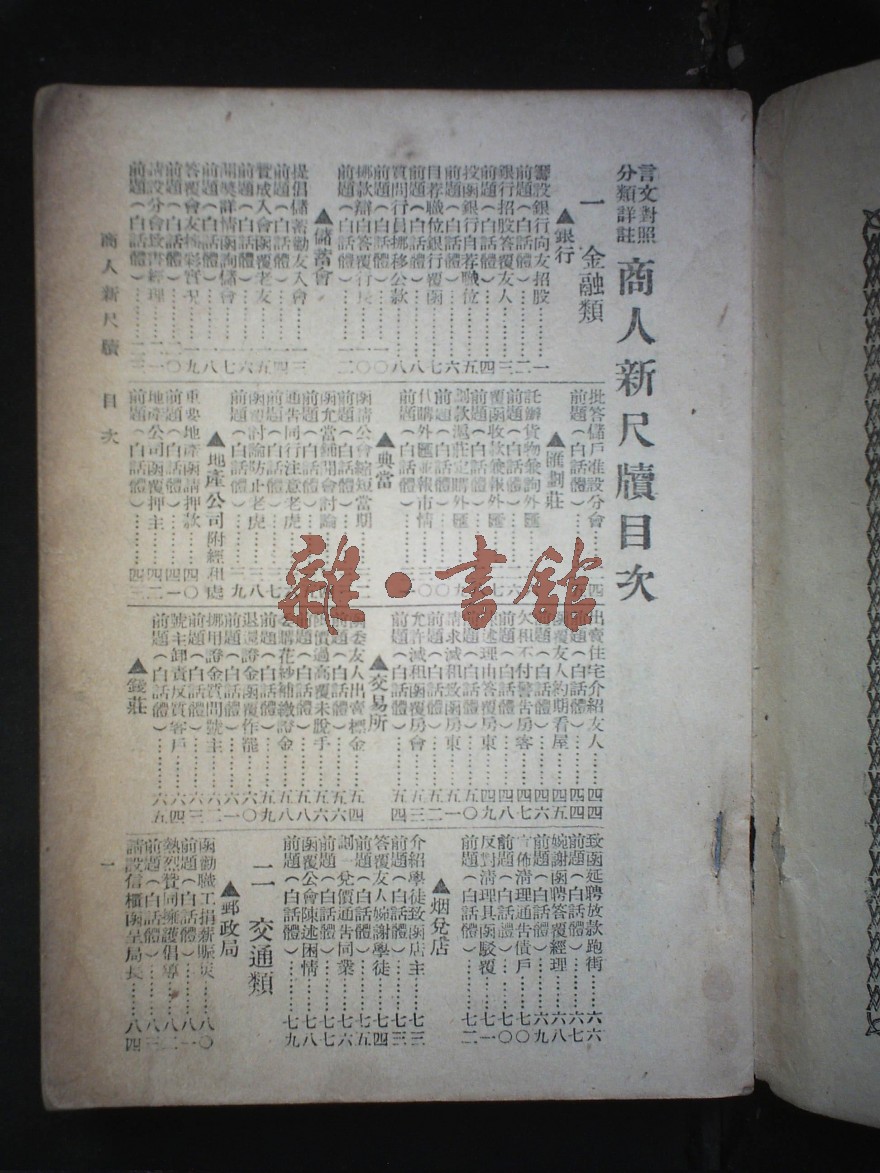 言文對照
分類詳註
商人新尺牘目次
一 金融類
▲銀行
籌設銀行向友招股……一
前題(白話體)……二
銀行招股答覆友人……三
前題(白話體)……四
投函銀行自荐職位……五
前題(白話體)……六
自荐職位銀行覆函……七
前題(白話體)……八
質問行員挪移公款……八
前題(白話體)……一〇
挪款辯白答覆行長
前題(白話體)……一二
▲儲蓄會
提倡儲蓄勸友入會……一三
前題(白話體)……一四
贊成入會函覆老友……一五
前題(白話體)……一六
開獎詳情函詢儲會……一七
前題(白話體)……一八
答覆會友
前題(白話體)
請設分會致書經理
前題(白話體)
批答儲戶准設分會
前題(白話體)
▲匯劃莊
託辦貨物發詢外匯
前題(白話體)
覆函收款發報外匯
前題(白話體)
劃款滬莊定購外匯
前題(白話體)
代購外匯並報市情
前題(白話體)
▲典當
函請公會縮短當期
前題(白話體)
函允當鋪開會討論
前題(白話體)
通告同行注意老虎
前題(白話體)
函覆討論防止老虎
前題(白話體)……三九
▲地產公司附經租處
重要地產函請押款……四〇
前題(白話體)……四一
地產公司函覆押主……四二
前題(白話體)……四三
出賣住宅介紹友人……四四
前題(白話體)……四四
函覆友人約期看屋……四五
前題(白話體)……四六
欠租不付警告房客……四七
前題(白話體)……四八
陳述理由答覆房東……四九
前題(白話體)……五〇
請求減租致函房東……五一
前題(白話體)……五二
允許減租函覆房會……五三
前題(白話體)……五四
▲交易所
函委友人出賣標金……五四
前題(白話體)……五五
限價過高覆未脫手……五六
前題(白話體)……五六
委購花紗補繳證金……五八
前題(白話體)……五九
退還證金函覆作罷……六〇
前題(白話體)……六一
挪用證金質問號主……六二
前題(白話體)……六三
號主卸責反質客戶……六四
前題(白話體)……六五
▲錢莊
致函延聘放款跑街……六六
前題(白話體)……六七
婉謝函聘答覆經理……六八
前題(白話體)……六九
宣佈清理通告債戶……七〇
前題(白話體)……七〇
反對清理具函駁覆……七一
前題(白話體)……七二
▲烟兌店
介紹學徒致函店主……七三
前題(白話體)……七三
答覆友人婉謝學徒……七四
前題(白話體)……七五
劃一兌價通告同業……七六
前題(白話體)……七七
函覆公會陳述困情……七八
前題(白話體)……七九
二 交通類
▲郵政局
函勸職工捐薪賑災……八〇
前題(白話體)……八一
熱烈贊同擁護倡導……八二
前題(白話體)……八三
請設信櫃函呈局長……八四
商人新尺牘 目次
一
雜·書館